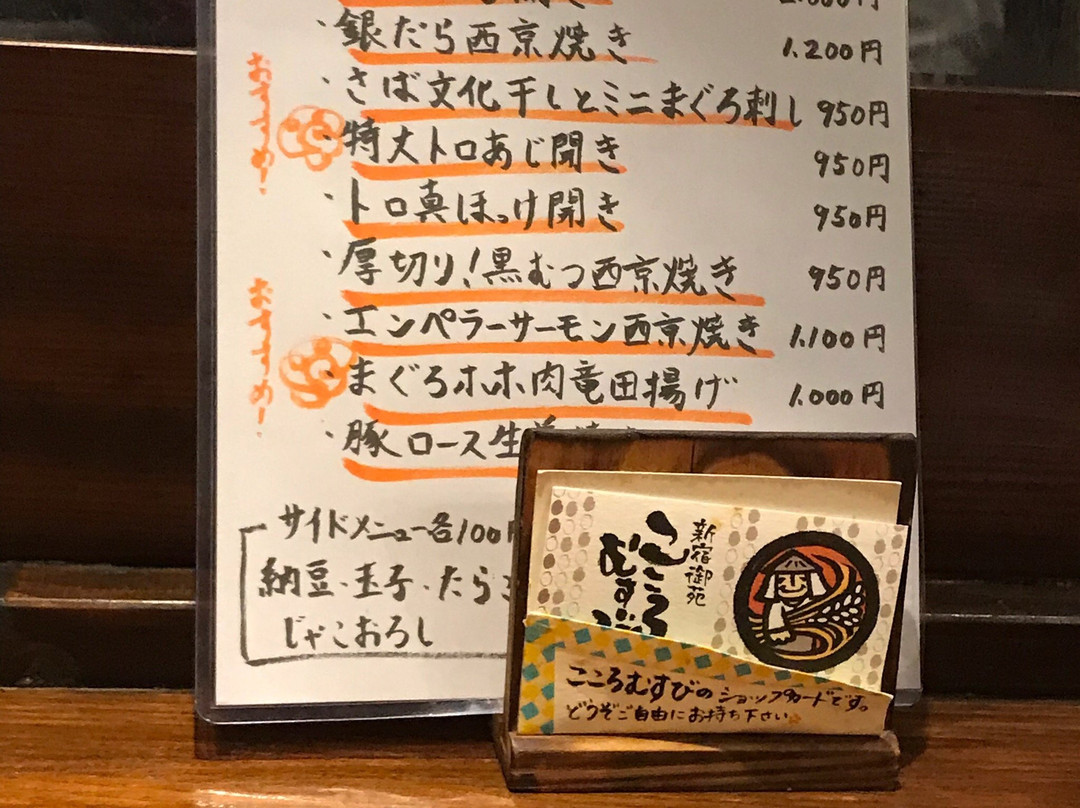 ・銀だら西京焼き 1.200円
・さば文化干しとミニまぐろ刺し 950円
おすすめ!
・特大トロあじ開き 950円
・トロ真ほっけ開き 950円
・厚切り!黒むつ西京焼き 950円
・エンペラーサーモン西京焼き 1.100円
おすすめ!
・まぐろホホ肉竜田揚げ 1.000円
・豚ロース生
サイドメニュー各100円
納豆・玉子・たら
じゃこおろし
新宿御苑
こころ
むすび
こころむすびのショップカードです。
どうぞご自由にお持ち下さい